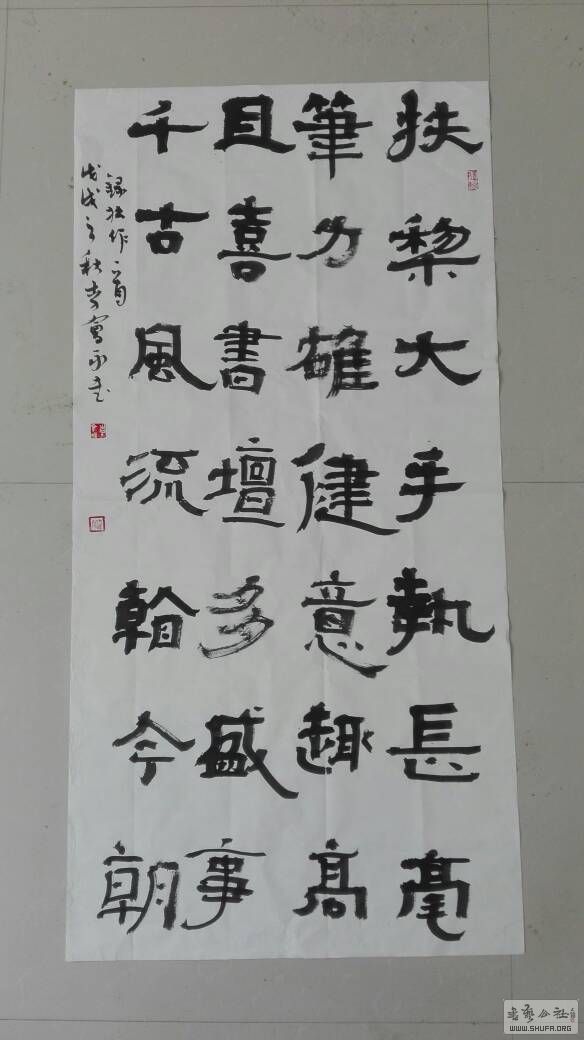 扶犂大手執長毫
筆力雄健意趣高
且喜書壇多盛事
千古風流輸今朝
錄拙作一首
戊戌之秋
書藝公社
WWW.SHUFA.ORG